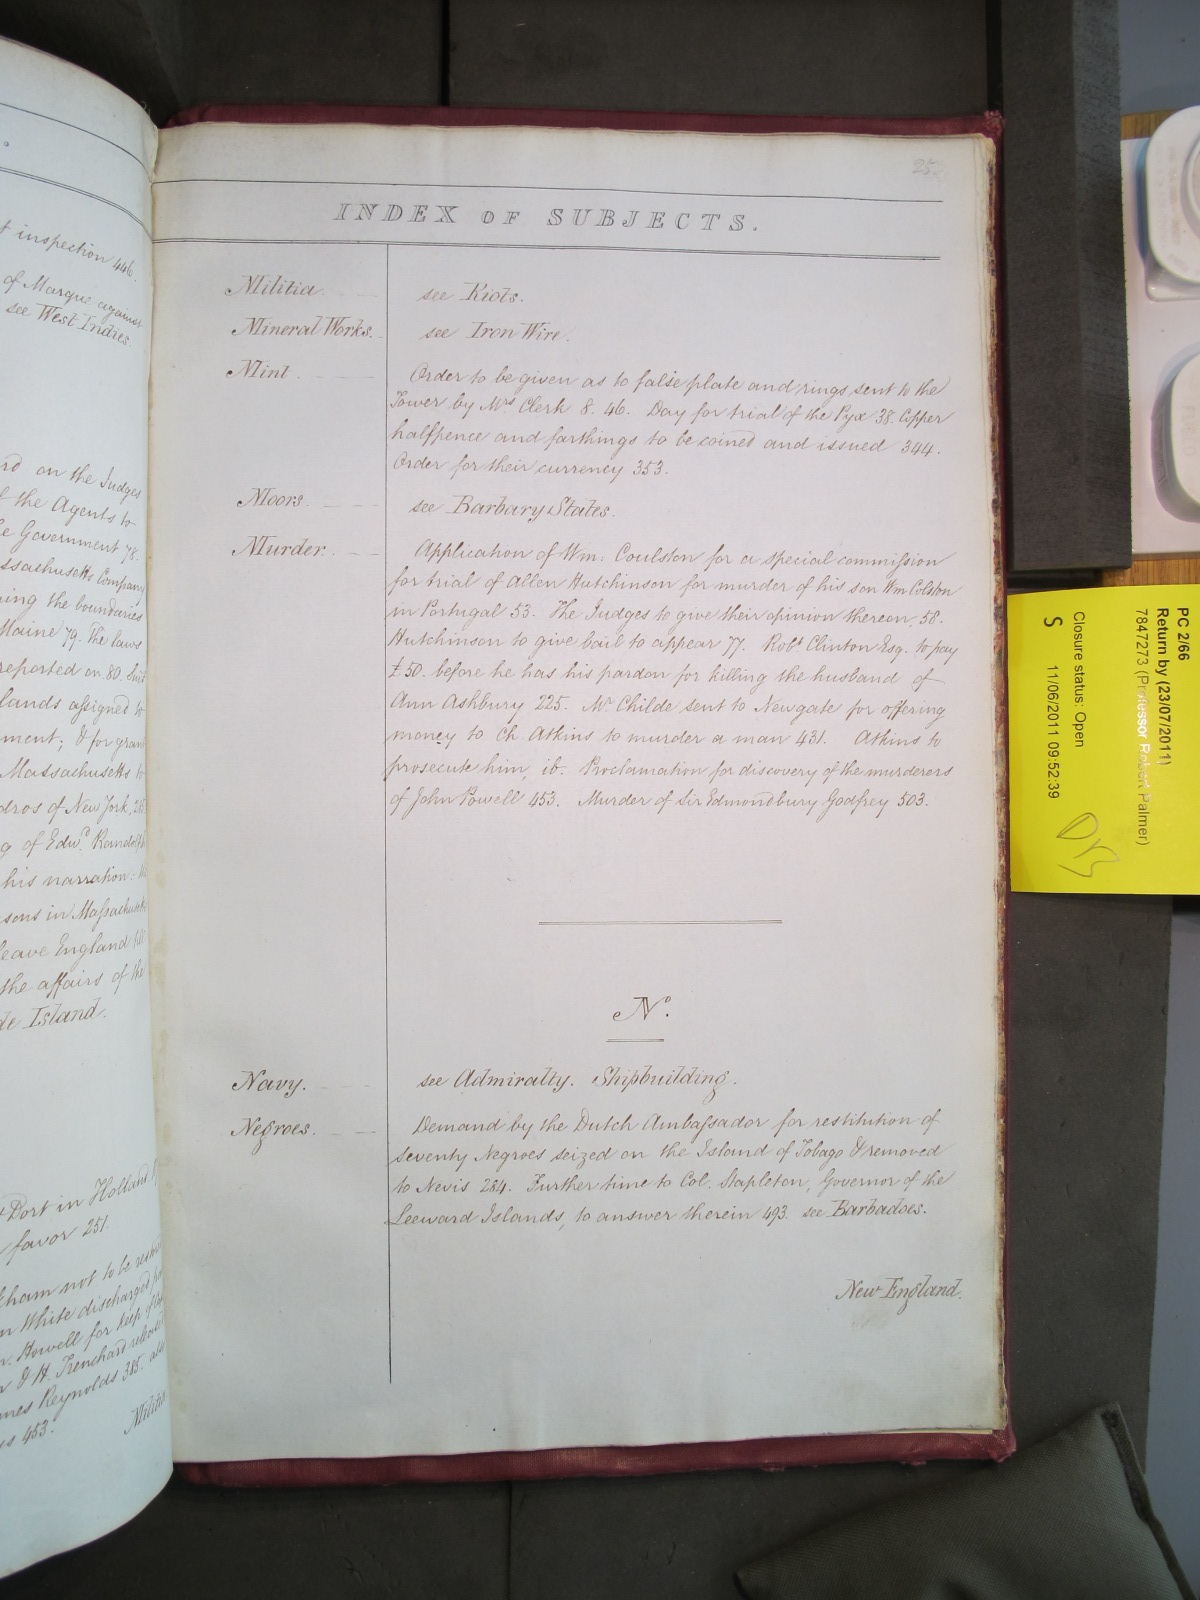 t inspection 446.
of Marque against
see West Indies.
rd on the Judges
f the Agents to
Government 78.
ssachusetts Company
ing the boundaries
Maine 79. The laws
reported on 80. Suit
lands assigned to
ment; & for grant
Massachusetts to
dros of New York, 28
g of Edwd. Randolph
his narration:
sons in Massachusetts
leave England till
the affairs of the
de Island.
Port in Holland
favor 251.
ham not to be
White discharged
Howell for keep
& H. Trenchard
mes Reynolds 385.
453.
Militia
25
INDEX OF SUBJECTS.
Militia. see Riots.
Mineral Works. see Iron Wire.
Mint. Order to be given as to false plate and rings sent to the
Tower by Mrs Clerk 8. 46. Day for trial of the Pyx 38. Copper
halfpence and farthings to be coined and issued 344.
Order for their currency 353.
Moors. see Barbary States.
Murder. Application of Wm: Coulston for a special commission
for trial of Allen Hutchinson for murder of his son Wm Colston
in Portugal 53. The Judges to give their opinion thereon, 58.
Hutchinson to give bail to appear 77. Robt Clinton Esq. to pay
£50. before he has his pardon for killing the husband of
Ann Ashbury 225. Mr Childe sent to Newgate for offering
money to Ch. Atkins to murder a man 431. Atkins to
prosecute him, ib. Proclamation for discovery of the murderers
of John Powell 453. Murder of Sir Edmondbury Godfrey 503.
N.
Navy. see Admiralty. Shipbuilding.
Negroes. Demand by the Dutch Ambassador for restitution of
seventy Negroes seized on the Island of Tobago & removed
to Nevis 284. Further time to Col. Stapleton, Governor of the
Leeward Islands, to answer therein 493. see Barbadoes.
New England.
PC 2/66
Return by (23/07/2011)
7847273 (Professor Robert Palmer)
Closure status: Open
S 11/06/2011 09:52:39
DB